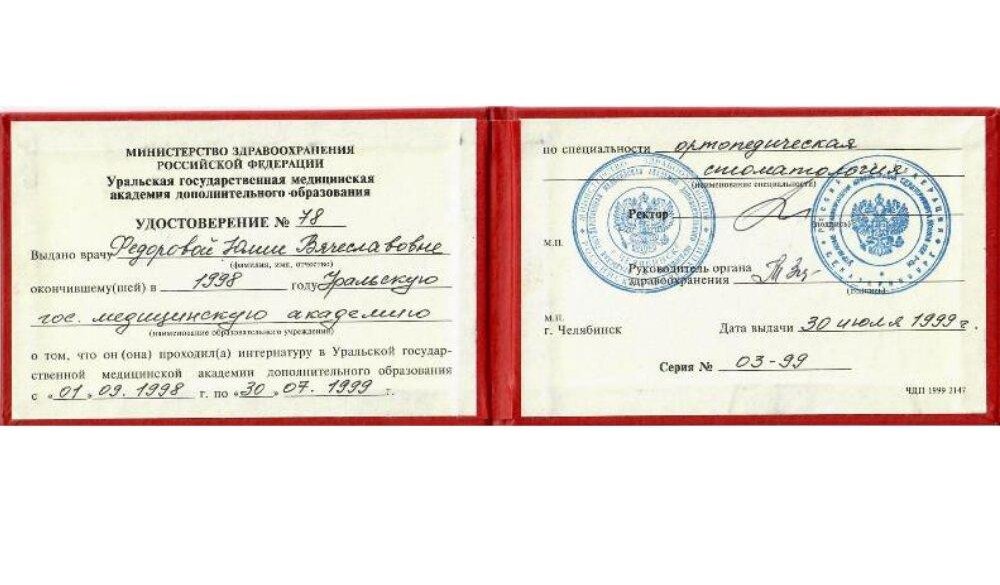 МИНИСТЕРСТВО ЗДРАВООХРАНЕНИЯ
РОССИЙСКОЙ ФЕДЕРАЦИИ
Уральская государственная медицинская
академия дополнительного образования
УДОСТОВЕРЕНИЕ № 78
Выдано врачу Федоровой Юлии Вячеславовне
(фамилия, имя, отчество)
окончившему(шей) в 1998 году Уральскую
гос. медицинскую академию
(наименование образовательного учреждения)
о том, что он (она) проходил(а) интернатуру в Уральской государ-
ственной медицинской академии дополнительного образования
с «01» 09. 1998 г. по «30» 07. 1999 г.
по специальности ортопедическая
стоматология
(наименование специальности)
Ректор
(подпись)
М.П.
Руководитель органа
здравоохранения
(подпись)
М.П.
г. Челябинск Дата выдачи 30 июля 1999 г.
Серия № 03-99
ЧДП 1999 2147